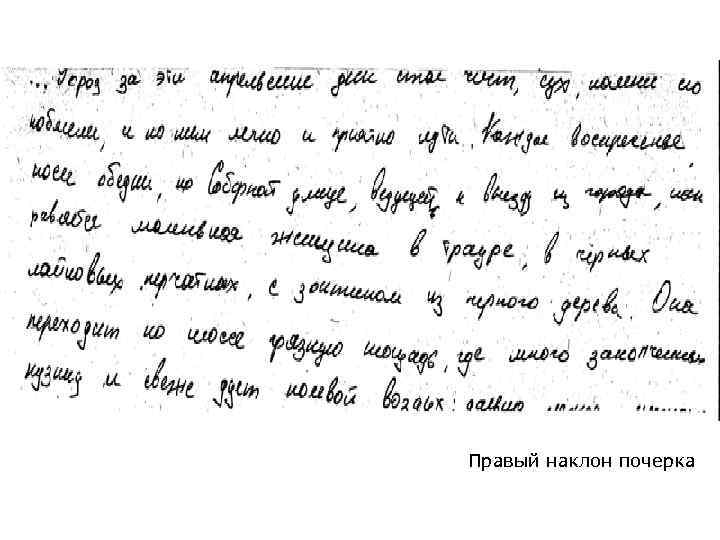 ... Город за эти апрельские дни стал чист, сух, камни его
побелели, и по ним легко и приятно идти. Каждое воскресенье,
после обедни, по Соборной улице, ведущей к выезду из города,
маленькая женщина в трауре, в чёрных
лайковых перчатках, с зонтиком из черного дерева. Она
переходит по шоссе грязную площадь, где много закопченных
кузниц и свежо дует полевой воздух;
Правый наклон почерка